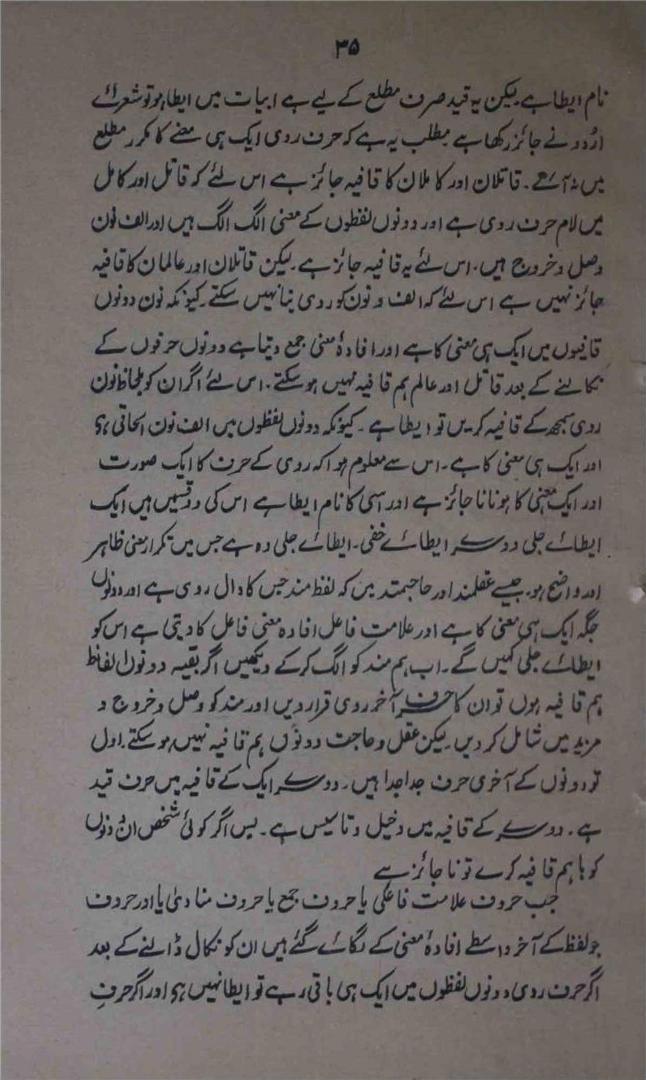 ۳۵
نام ایطا ہے لیکن یہ قید صرف مطلع کے لیے ہے ابیات میں ایطا ہو تو شعرائے
اُردو نے جائز رکھا ہے مطلب یہ ہے کہ حرف روی ایک ہی معنے کا مکرر مطلع
میں نہ آسکے۔ قاتلان اور کاملان کا قافیہ جائز ہے اس لئے کہ قاتل اور کامل
میں لام حرف روی ہے اور دونوں لفظوں کے معنی الگ الگ ہیں اور الف نون
وصل و خروج ہیں۔ اس لئے یہ قافیہ جائز ہے لیکن قاتلان اور عالمان کا قافیہ
جائز نہیں ہے اس لئے کہ الف و نون کو روی بنا نہیں سکتے۔ کیونکہ نون دونوں
قافیوں میں ایک ہی معنی کا ہے اور افادۂ معنی جمع دیتا ہے دونوں حرفوں کے
نکالنے کے بعد قاتل اور عالم ہم قافیہ نہیں ہوسکتے۔ اس لئے اگر ان کو بلحاظ نون
روی سمجھ کے قافیہ کریں تو ایطا ہے۔ کیونکہ دونوں لفظوں میں الف نون الحاقی ہی
اور ایک ہی معنی کا ہے۔ اس سے معلوم ہوا کہ روی کے حرف کا ایک صورت
اور ایک معنی کا ہونا ناجائز ہے اور اسی کا نام ایطا ہے اس کی دو قسمیں ہیں ایک
ایطائے جلی دوسرے ایطائے خفی۔ ایطائے جلی وہ ہے جس میں تکرار معنی ظاہر
اور واضح ہو۔ جیسے عقلمند اور حاجتمند میں کہ لفظ مند جس کا دال روی ہے اور دونوں
جگہ ایک ہی معنی کا ہے اور علامت فاعل افادہ معنی فاعل کا دیتی ہے اس کو
ایطائے جلی کہیں گے۔ اب ہم مند کو الگ کرکے دیکھیں اگر بقیہ دونوں الفاظ
ہم قافیہ ہوں تو ان کا حرف آخر روی قرار دیں اور مند کو وصل و خروج و
مزید میں شامل کر دیں۔ لیکن عقل و حاجت دونوں ہم قافیہ نہیں ہوسکتے۔ اول
تو دونوں کے آخری حرف جدا جدا ہیں۔ دوسرے ایک کے قافیہ میں حرف قید
ہے۔ دوسرے کے قافیہ میں دخیل و تاسیس ہے۔ پس اگر کوئی شخص ان دونوں
کو باہم قافیہ کرے تو ناجائز ہے
جب حروف علامت فاعلی یا حروف جمع یا حروف منادیٰ یا اور حروف
جو لفظ کے آخر واسطے افادۂ معنی کے لگائے گئے ہیں ان کو نکال ڈالنے کے بعد
اگر حرف روی دونوں لفظوں میں ایک ہی باقی رہے تو ایطا نہیں ہے اور اگر حرفِ